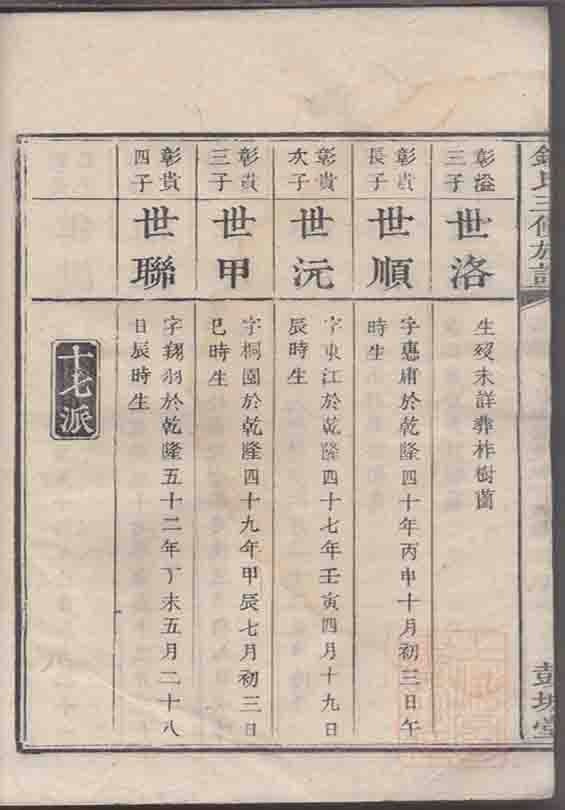 彰溢三子
世洛
生歿未詳葬柞樹薗
彰貴長子
世順
字惠甫於乾隆四十年丙申十月初三日午
時生
彰貴次子
世沅
字東江於乾隆四十七年壬寅四月十九日
辰時生
彰貴三子
世甲
字桐園於乾隆四十九年甲辰七月初三日
巳時生
彰貴四子
世聯
字翔羽於乾隆五十二年丁未五月二十八
日辰時生
十七派